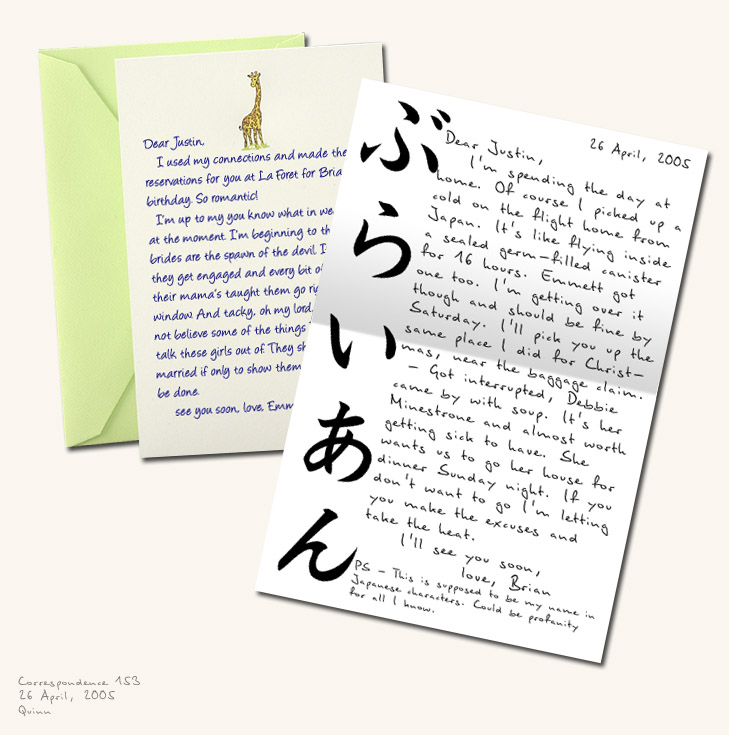 Dear Justin,
I used my connections and made the
reservations for you at La Foret for Bria
birthday. So romantic!
I'm up to my you know what in we
at the moment. I'm beginning to th
brides are the spawn of the devil. I
they get engaged and every bit of
their mama's taught them go ri
window. And tacky, oh my lord,
not believe some of the things
talk these girls out of. They sh
married if only to show them
be done.
see you soon, love, Emm
ぶらいあん
26 April, 2005
Dear Justin,
I'm spending the day at
home. Of course I picked up a
cold on the flight home from
Japan. It's like flying inside
a sealed germ-filled canister
for 16 hours. Emmett got
one too. I'm getting over it
though and should be fine by
Saturday. I'll pick you up the
same place I did for Christ-
mas, near the baggage claim.
- Got interrupted, Debbie
came by with soup. It's her
Minestrone and almost worth
getting sick to have. She
wants us to go her house for
dinner Sunday night. If you
don't want to go I'm letting
you make the excuses and
take the heat.
I'll see you soon,
love, Brian
PS - This is supposed to be my name in
Japanese characters. Could be profanity
for all I know.
Correspondence 153
26 April, 2005
Quinn